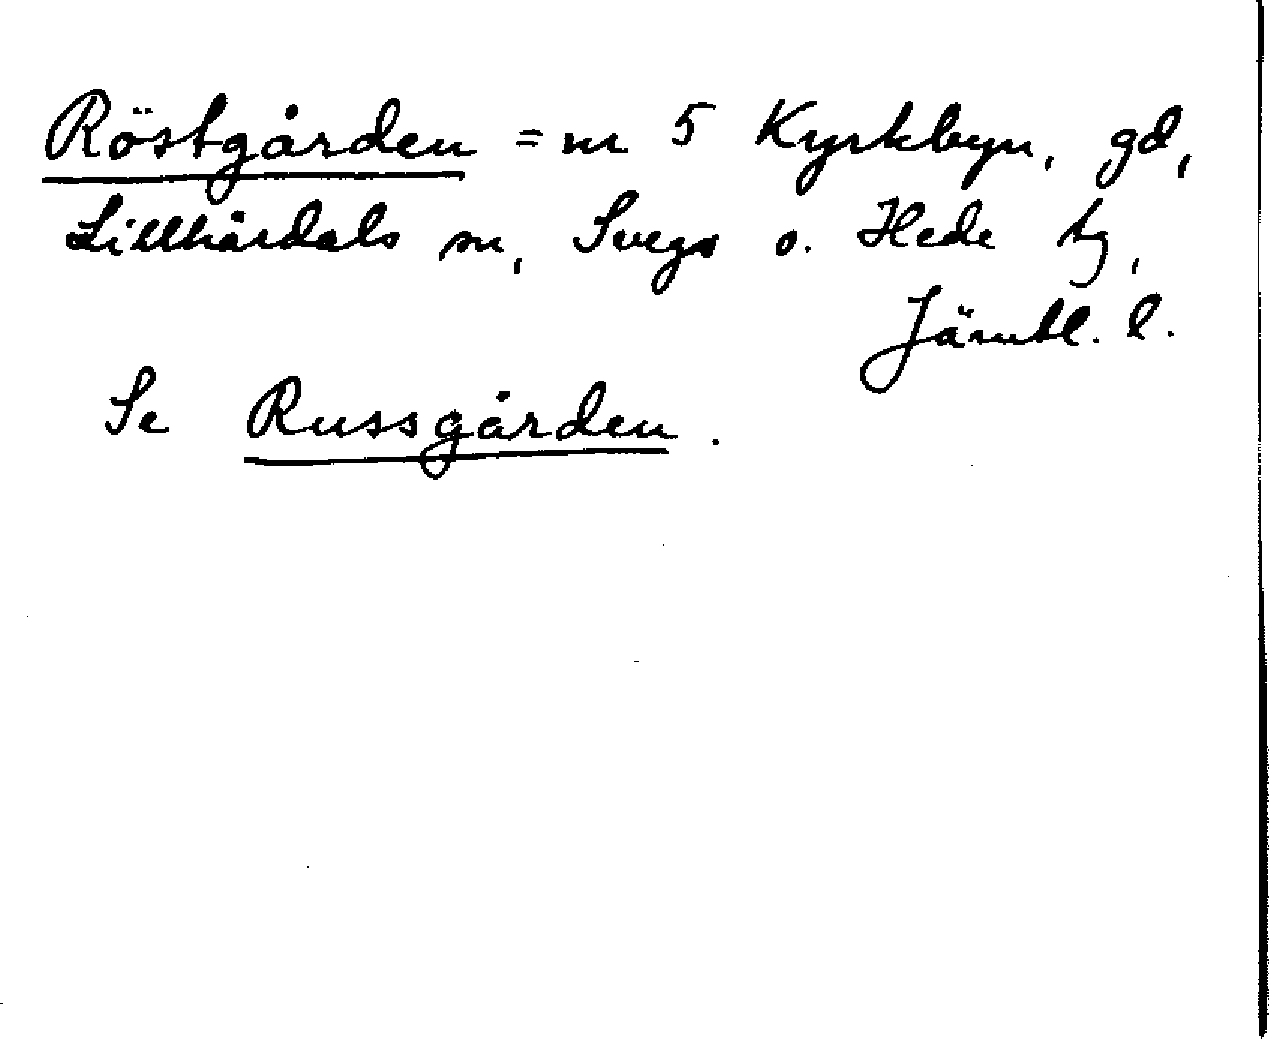 Röstgården = nr 5 Kyrkbyn, gd,
Lillhärdals sn, Svegs o. Hede tg,
Jämtl. l.
Se Russgården.